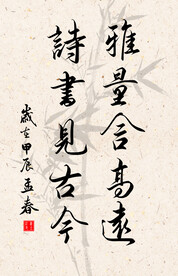 雅量含高遠
詩書見古今
歲在甲辰孟春